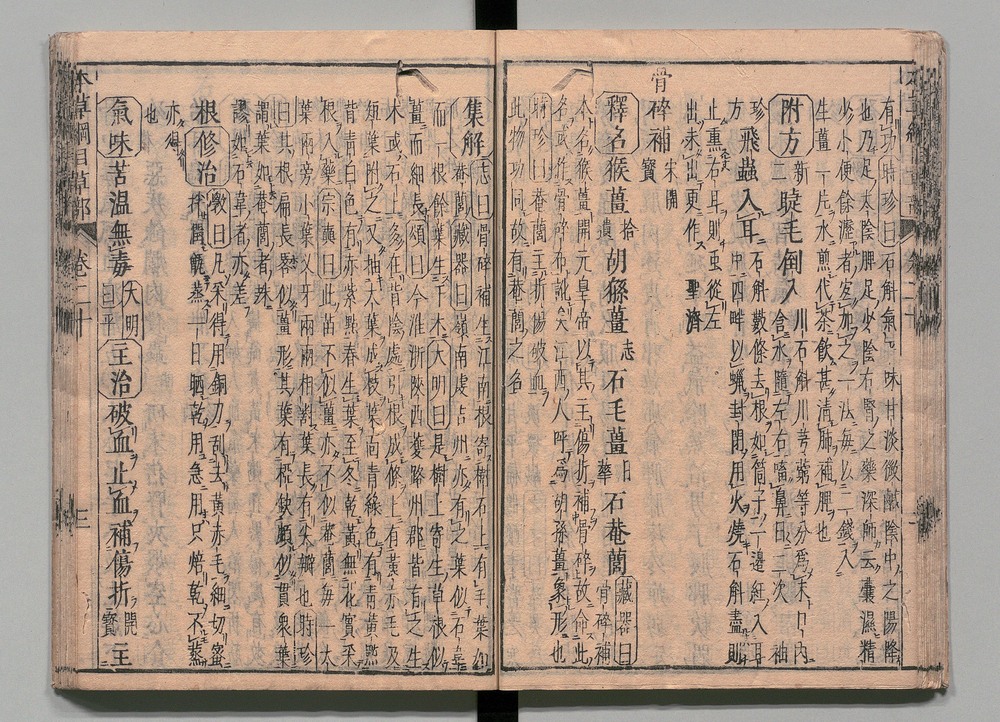 有功時珍曰石斛氣味甘淡微鹹陰中之陽降
也乃足太陰脾足少陰右腎之藥深師云囊濕精
少小便餘瀝者宜加之一法每以二錢入
生薑一片水煎代茶飲甚清肺補脾也
附方新二睫毛倒入川石斛川芎藭等分爲末口内含水隨左右㗜鼻日二次
飛蟲入耳石斛數條去根如筒子一邊紝入耳中四畔以蠟封閉用火燒石斛盡則
止熏右耳則虫從左
出未出更作聖濟
骨碎補宋開寶
釋名猴薑拾遺胡猻薑志石毛薑日華石菴䕡藏器曰骨碎補
本名猴薑開元皇帝以其主傷折補骨碎故命此
名或作骨碎布訛矣江西人呼爲胡孫薑象形也
時珍曰菴䕡主折傷破血
此物功同故有菴䕡之名
集解志曰骨碎補生江南根寄樹石上有毛葉如
菴䕡藏器曰嶺南虔吉州亦有之葉似石韋
而一根餘葉生于木大明曰是樹上寄生草根似
薑而細長頌曰今淮浙陝西夔路州郡皆有之生
木或石上多在背陰處引根成條上有黄赤毛及
短葉附之又抽大葉成枝葉面青緑色有青黄㸃
背青白色有赤紫㸃春生葉至冬乾黄無花實采
根入藥宗奭曰此苗不似薑亦不似菴䕡每一大
葉兩旁小葉叉牙兩兩相對葉長有尖瓣也時珍
曰其根扁長畧似薑形其葉有椏缺頗似貫衆葉
謂葉如菴䕡者殊
謬如石韋者亦差
根修治斆曰凡采得用銅刀刮去黄赤毛細切蜜
拌潤甑蒸一日晒乾用急用只焙乾不蒸
亦得
也
氣味苦温無毒大明曰平主治破血止血補傷折開寶主
本草綱目草部 卷二十 三